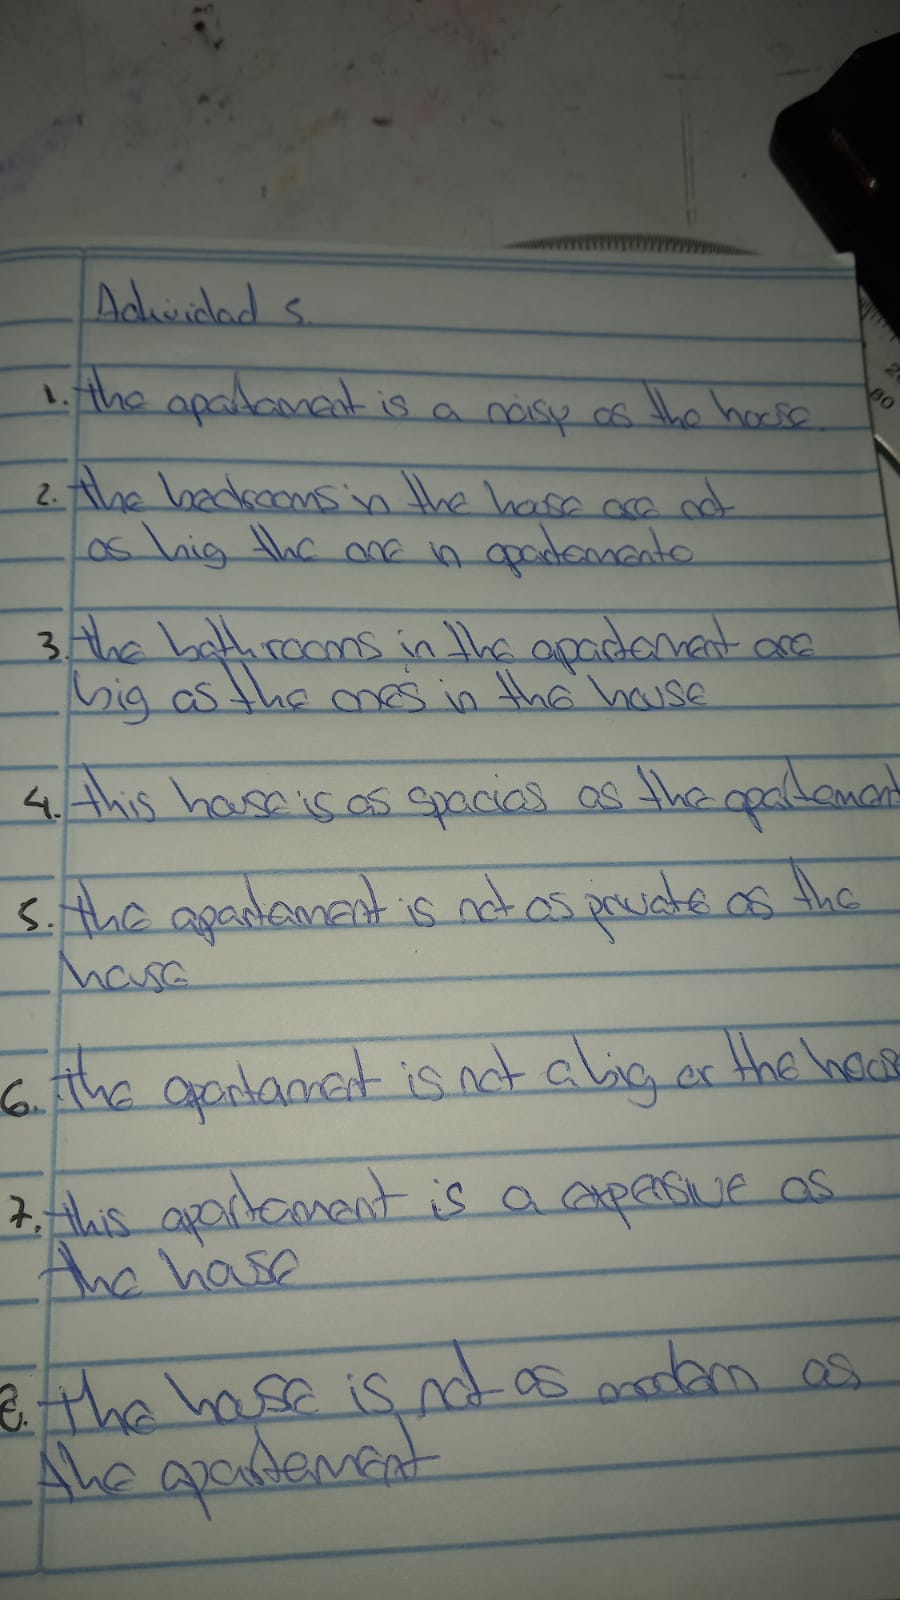 Actividad 5.
1. the apartament is a noisy as the house.
2. the bedrooms in the house are not
as big the one in apartemento
3. the bathrooms in the apartement are
big as the ones in the house
4. this house is as spacias as the apartement
5. the apartament is not as private as the
house
6. the apartament is not a big as the house
7. this apartament is a expensive as
the hase
8. the house is not as modern as
the apartement